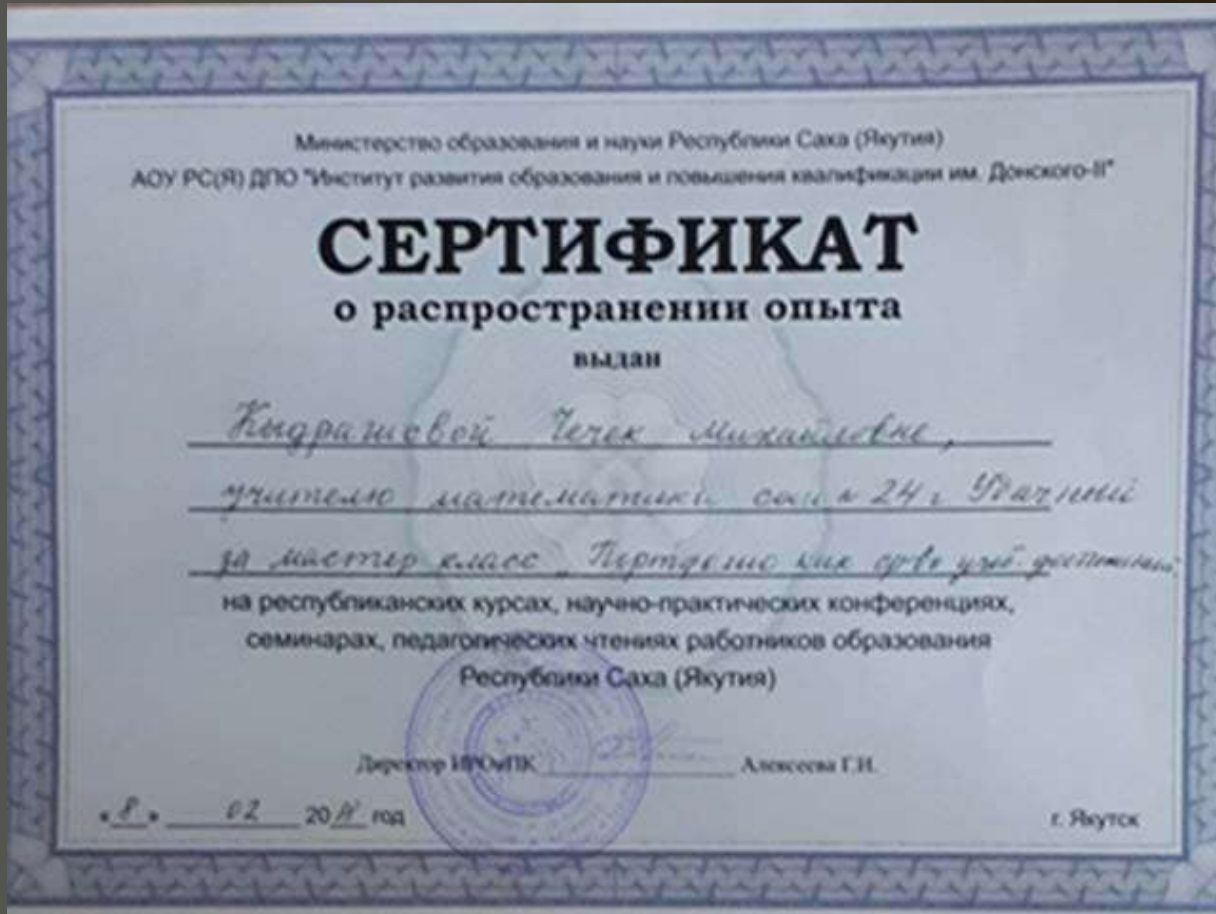 Министерство образования и науки Республики Саха (Якутия)
АОУ РС(Я) ДПО "Институт развития образования и повышения квалификации им. Донского-II"
СЕРТИФИКАТ
о распространении опыта
выдан
Кыдрашевой Чечек Михайловне,
учителю математики сош № 24 г Удачный
за мастер класс „Портфолио как ср-во
на республиканских курсах, научно-практических конференциях,
семинарах, педагогических чтениях работников образования
Республики Саха (Якутия)
Директор ИРОиПК Алексеева Г.И.
«8» 02 20 год г. Якутск